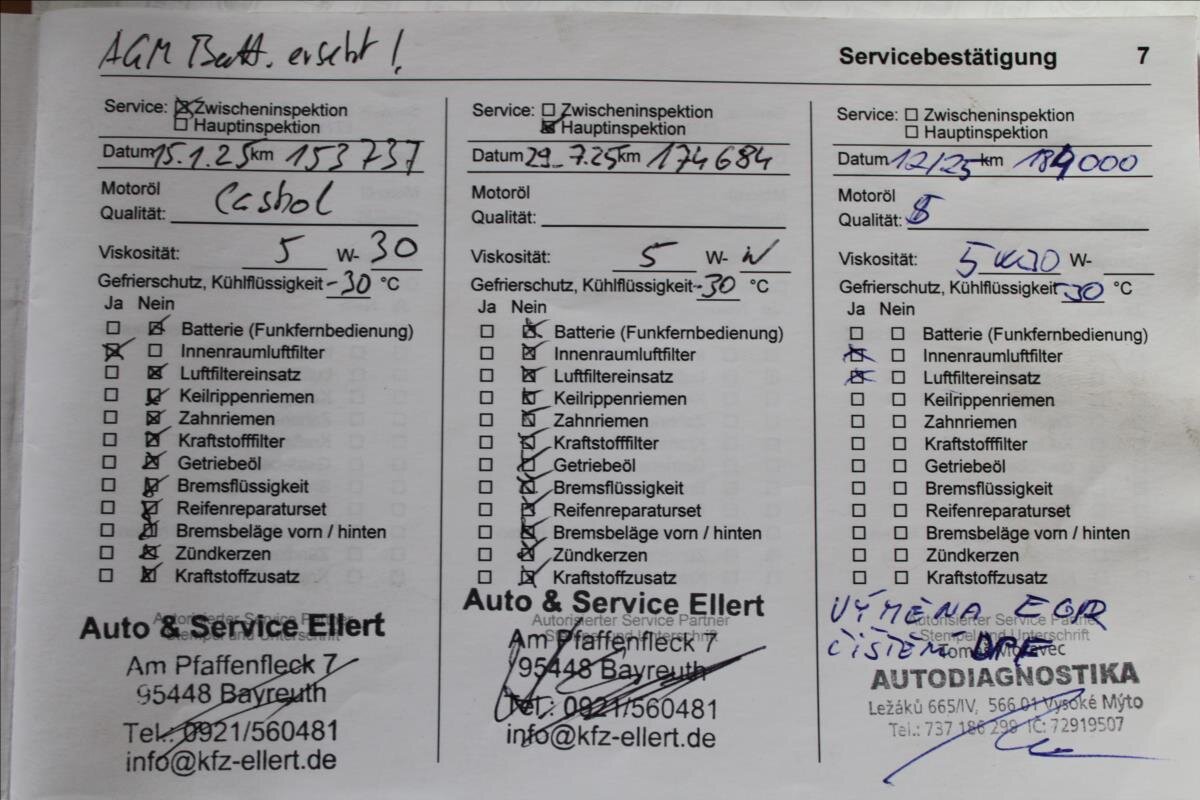 AGM Batt. ersetzt!
Servicebestätigung 7
Service: Zwischeninspektion
Hauptinspektion
Datum 15.1.25 km 153737
Motoröl
Qualität: Castrol
Viskosität: 5 W-30
Gefrierschutz, Kühlflüssigkeit -30 °C
Ja Nein
Batterie (Funkfernbedienung)
Innenraumluftfilter
Luftfiltereinsatz
Keilrippenriemen
Zahnriemen
Kraftstofffilter
Getriebeöl
Bremsflüssigkeit
Reifenreparaturset
Bremsbeläge vorn / hinten
Zündkerzen
Kraftstoffzusatz
Autorisierter Service Partner
Stempel und Unterschrift
Auto & Service Ellert
Am Pfaffenfleck 7
95448 Bayreuth
Tel.: 0921/560481
info@kfz-ellert.de
Service: Zwischeninspektion
Hauptinspektion
Datum 29.7.25 km 174684
Motoröl
Qualität:
Viskosität: 5 W-
Gefrierschutz, Kühlflüssigkeit -30 °C
Ja Nein
Batterie (Funkfernbedienung)
Innenraumluftfilter
Luftfiltereinsatz
Keilrippenriemen
Zahnriemen
Kraftstofffilter
Getriebeöl
Bremsflüssigkeit
Reifenreparaturset
Bremsbeläge vorn / hinten
Zündkerzen
Kraftstoffzusatz
Auto & Service Ellert
Autorisierter Service Partner
Stempel und Unterschrift
Am Pfaffenfleck 7
95448 Bayreuth
Tel.: 0921/560481
info@kfz-ellert.de
Service: Zwischeninspektion
Hauptinspektion
Datum 12/25 km 184000
Motoröl
Qualität:
Viskosität: 5W30 W-
Gefrierschutz, Kühlflüssigkeit -30 °C
Ja Nein
Batterie (Funkfernbedienung)
Innenraumluftfilter
Luftfiltereinsatz
Keilrippenriemen
Zahnriemen
Kraftstofffilter
Getriebeöl
Bremsflüssigkeit
Reifenreparaturset
Bremsbeläge vorn / hinten
Zündkerzen
Kraftstoffzusatz
VÝMĚNA EGR
Autorisierter Service Partner
Stempel und Unterschrift
ČIŠTĚNÍ DPF
Tomáš Moravec
AUTODIAGNOSTIKA
Ležáků 665/IV, 566 01 Vysoké Mýto
Tel.: 737 186 299 IČ: 72919507